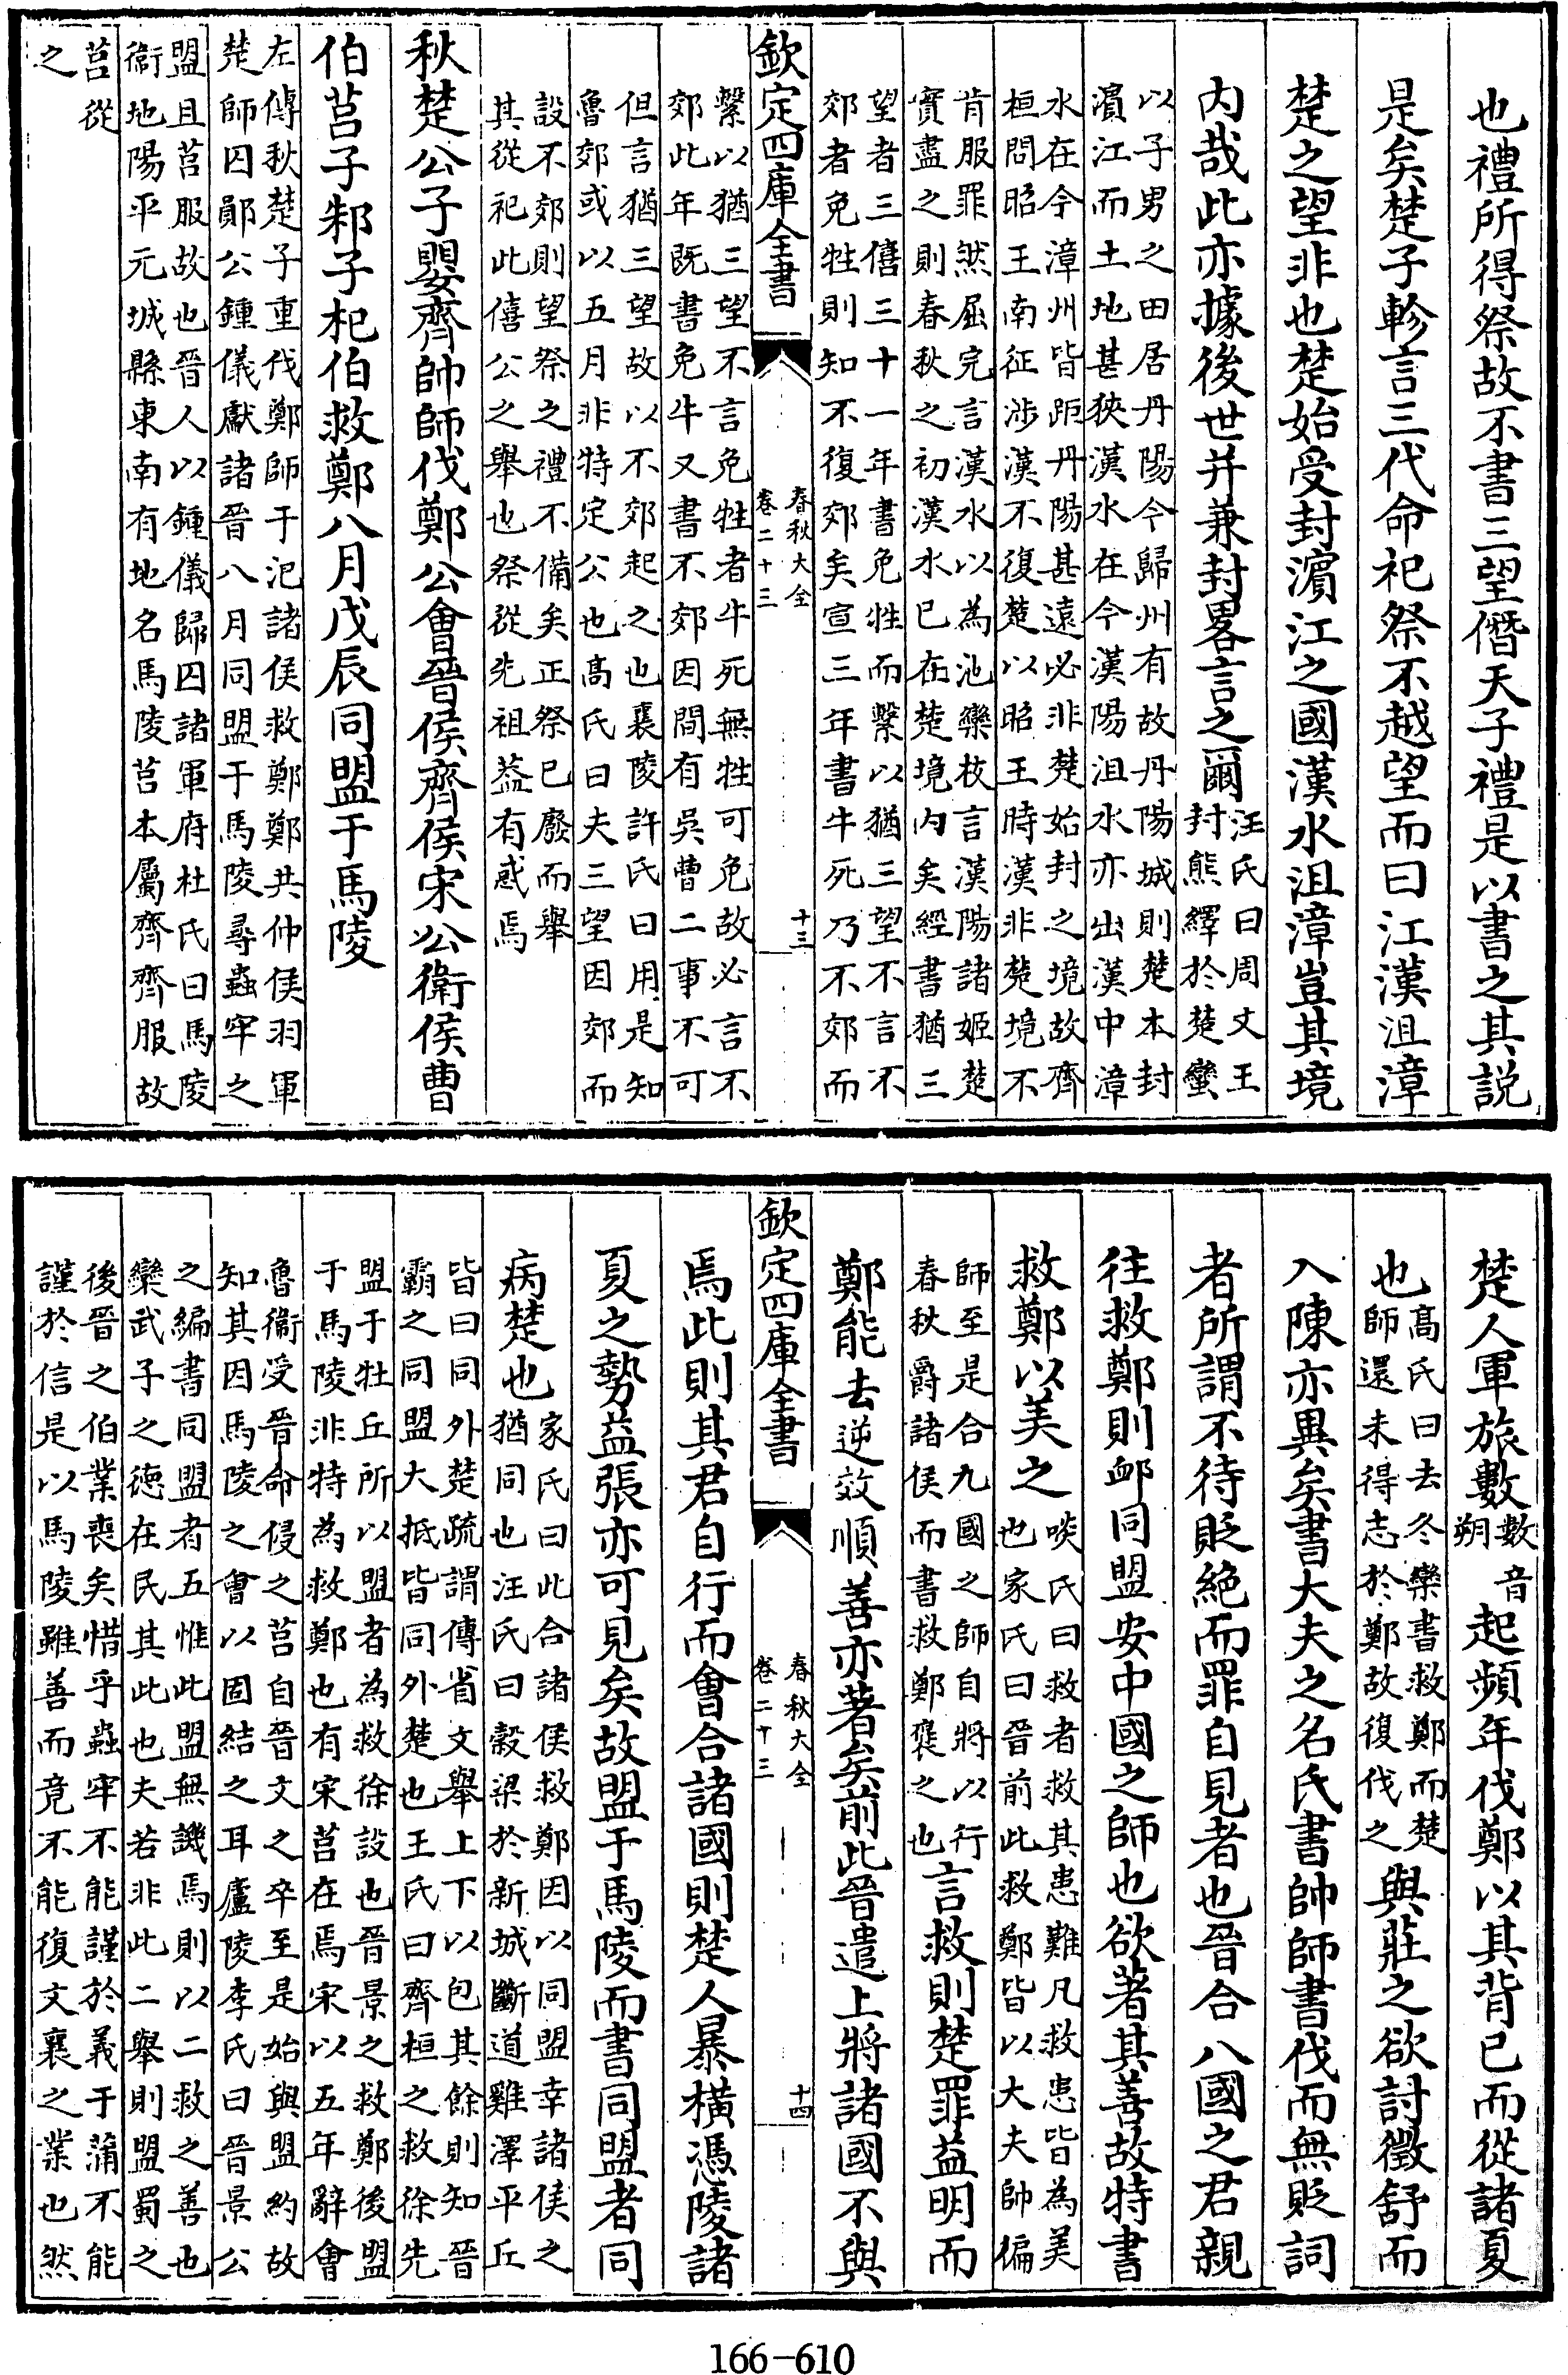 也禮所得祭故不書三望僭天子禮是以書之其説
是矣楚子軫言三代命祀祭不越望而曰江漢沮漳
楚之望非也楚始受封濵江之國漢水沮漳豈其境
内哉此亦據後世并兼封畧言之爾汪氏曰周文王
封熊繹於楚蠻
以子男之田居丹陽今歸州有故丹陽城則楚本封
濵江而土地甚狹漢水在今漢陽沮水亦出漢中漳
水在今漳州皆距丹陽甚遠必非楚始封之境故齊
桓問昭王南征渉漢不復楚以昭王時漢非楚境不
肯服罪然屈完言漢水以為池欒枝言漢陽諸姬楚
實盡之則春秋之初漢水已在楚境内矣經書猶三
望者三僖三十一年書免牲而繫以猶三望不言不
郊者免牲則知不復郊矣宣三年書牛死乃不郊而
欽定四庫全書
春秋大全
卷二十三
十三
繫以猶三望不言免牲者牛死無牲可免故必言不
郊此年既書免牛又書不郊因間有吳曹二事不可
但言猶三望故以不郊起之也襄陵許氏曰用是知
魯郊或以五月非特定公也髙氏曰夫三望因郊而
設不郊則望祭之禮不備矣正祭已廢而舉
其從祀此僖公之舉也祭從先祖葢有惑焉
秋楚公子嬰齊帥師伐鄭公會晉侯齊侯宋公衛侯曹
伯莒子邾子杞伯救鄭八月戊辰同盟于馬陵
左傳秋楚子重伐鄭師于氾諸侯救鄭鄭共仲侯羽軍
楚師囚鄖公鍾儀獻諸晉八月同盟于馬陵尋蟲牢之
盟且莒服故也晉人以鍾儀歸囚諸軍府杜氏曰馬陵
衞地陽平元城縣東南有地名馬陵莒本屬齊齊服故
莒從
之
楚人軍旅數數音
朔起頻年伐鄭以其背已而從諸夏
也髙氏曰去冬欒書救鄭而楚
師還未得志於鄭故復伐之與莊之欲討徵舒而
入陳亦異矣書大夫之名氏書帥師書伐而無貶詞
者所謂不待貶絶而罪自見者也晉合八國之君親
往救鄭則䘏同盟安中國之師也欲著其善故特書
救鄭以美之啖氏曰救者救其患難凡救患皆為美
也家氏曰晉前此救鄭皆以大夫帥偏
師至是合九國之師自將以行
春秋爵諸侯而書救鄭褒之也言救則楚罪益明而
鄭能去逆效順善亦著矣前此晉遣上將諸國不與
欽定四庫全書
春秋大全
卷二十三
十四
焉此則其君自行而會合諸國則楚人暴橫憑陵諸
夏之勢益張亦可見矣故盟于馬陵而書同盟者同
病楚也家氏曰此合諸侯救鄭因以同盟幸諸侯之
猶同也汪氏曰穀梁於新城斷道雞澤平丘
皆曰同外楚疏謂傳省文舉上下以包其餘則知晉
霸之同盟大抵皆同外楚也王氏曰齊桓之救徐先
盟于牡丘所以盟者為救徐設也晉景之救鄭後盟
于馬陵非特為救鄭也有宋莒在焉宋以五年辭會
魯衞受晉命侵之莒自晉文之卒至是始與盟約故
知其因馬陵之會以固結之耳廬陵李氏曰晉景公
之編書同盟者五惟此盟無譏焉則以二救之善也
欒武子之德在民其此也夫若非此二舉則盟蜀之
後晉之伯業喪矣惜乎蟲牢不能謹於義于蒲不能
謹於信是以馬陵雖善而竟不能復文襄之業也然
166-610